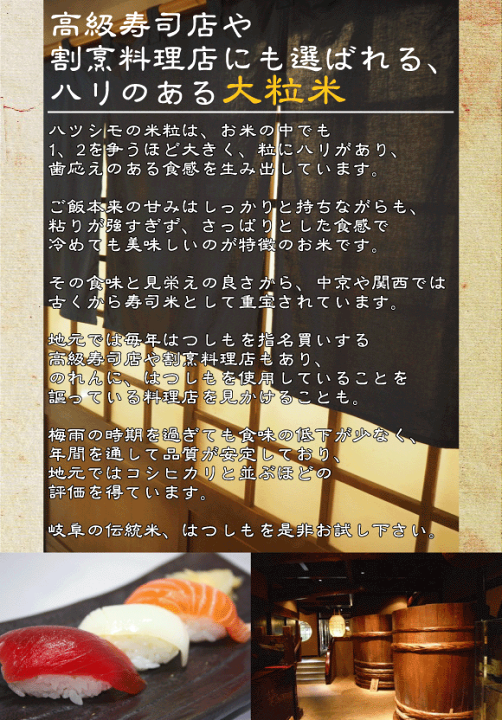 高級寿司店や
割烹料理店にも選ばれる、
ハリのある大粒米
ハツシモの米粒は、お米の中でも
1、2を争うほど大きく、粒にハリがあり、
歯応えのある食感を生み出しています。
ご飯本来の甘みはしっかりと持ちながらも、
粘りが強すぎず、さっぱりとした食感で
冷めても美味しいのが特徴のお米です。
その食味と見栄えの良さから、中京や関西では
古くから寿司米として重宝されています。
地元では毎年はつしもを指名買いする
高級寿司店や割烹料理店もあり、
のれんに、はつしもを使用していることを
謳っている料理店を見かけることも。
梅雨の時期を過ぎても食味の低下が少なく、
年間を通して品質が安定しており、
地元ではコシヒカリと並ぶほどの
評価を得ています。
岐阜の伝統米、はつしもを是非お試し下さい。